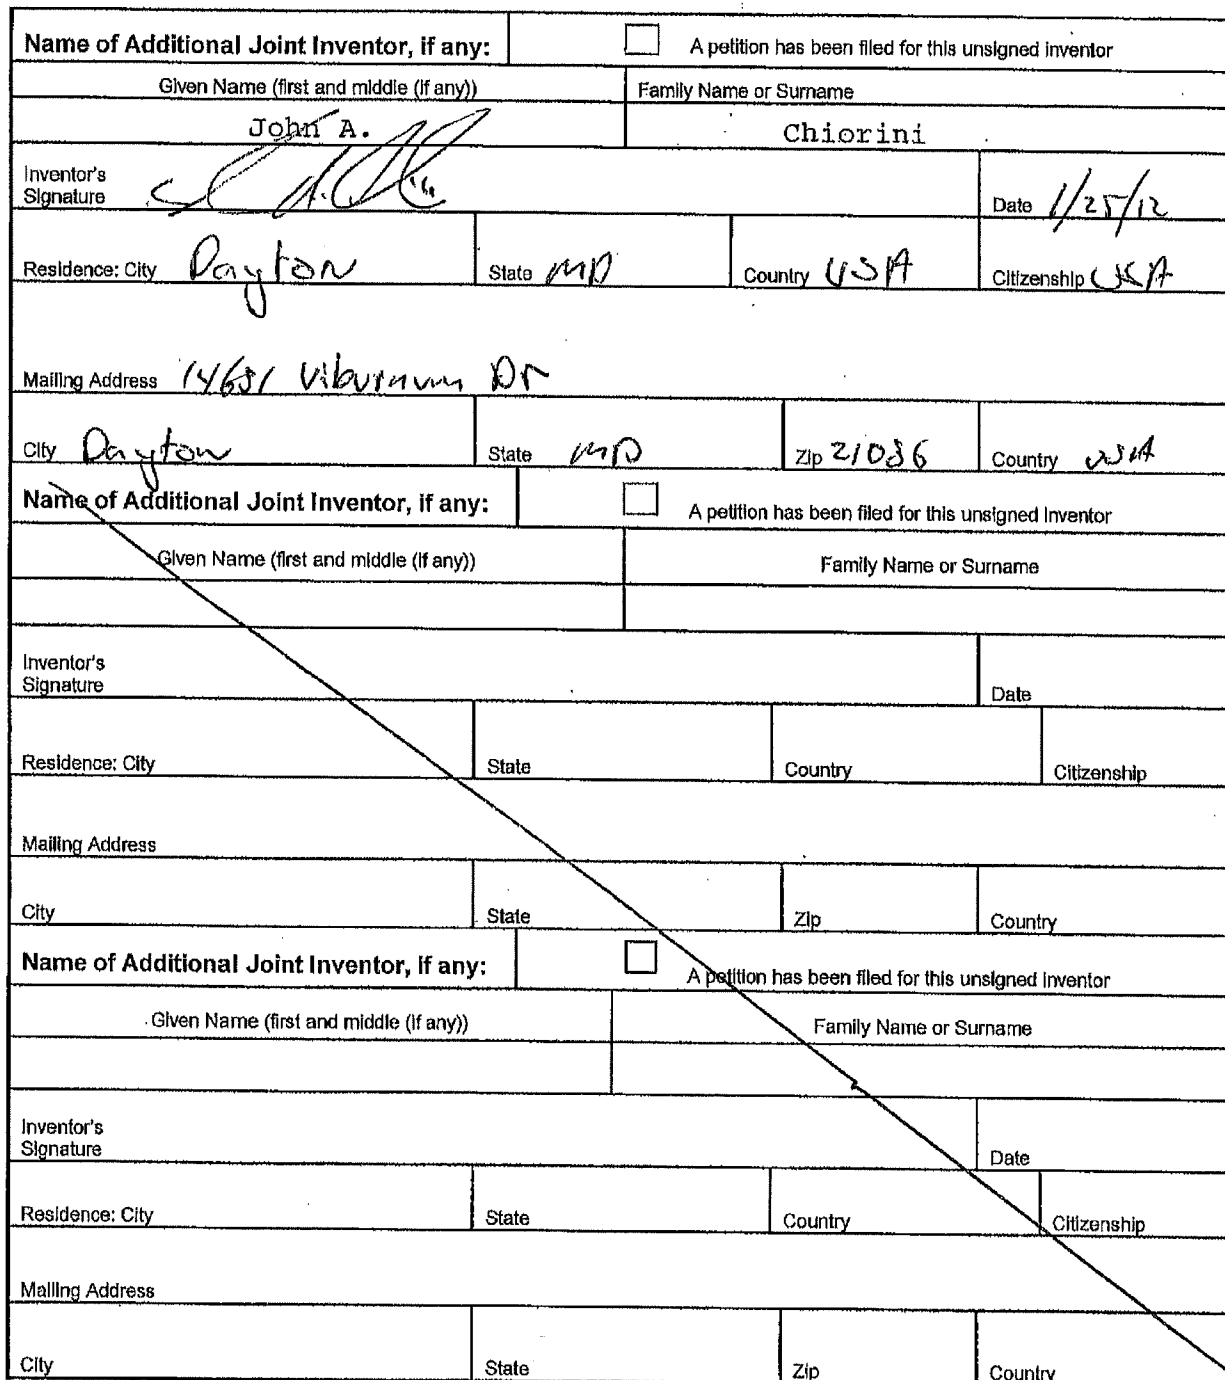 Name of Additional Joint Inventor, if any: A petition has been filed for this unsigned inventor
Given Name (first and middle (if any)) Family Name or Surname
John A. Chiorini
Inventor's
Signature Date 1/25/12
Residence: City Dayton State MD Country USA Citizenship USA
Mailing Address Viburnum Dr
City Dayton State MD Zip 21036 Country USA
Name of Additional Joint Inventor, if any: A petition has been filed for this unsigned inventor
Given Name (first and middle (if any)) Family Name or Surname
Inventor's
Signature Date
Residence: City State Country Citizenship
Mailing Address
City State Zip Country
Name of Additional Joint Inventor, if any: A petition has been filed for this unsigned inventor
Given Name (first and middle (if any)) Family Name or Surname
Inventor's
Signature Date
Residence: City State Country Citizenship
Mailing Address
City State Zip Country